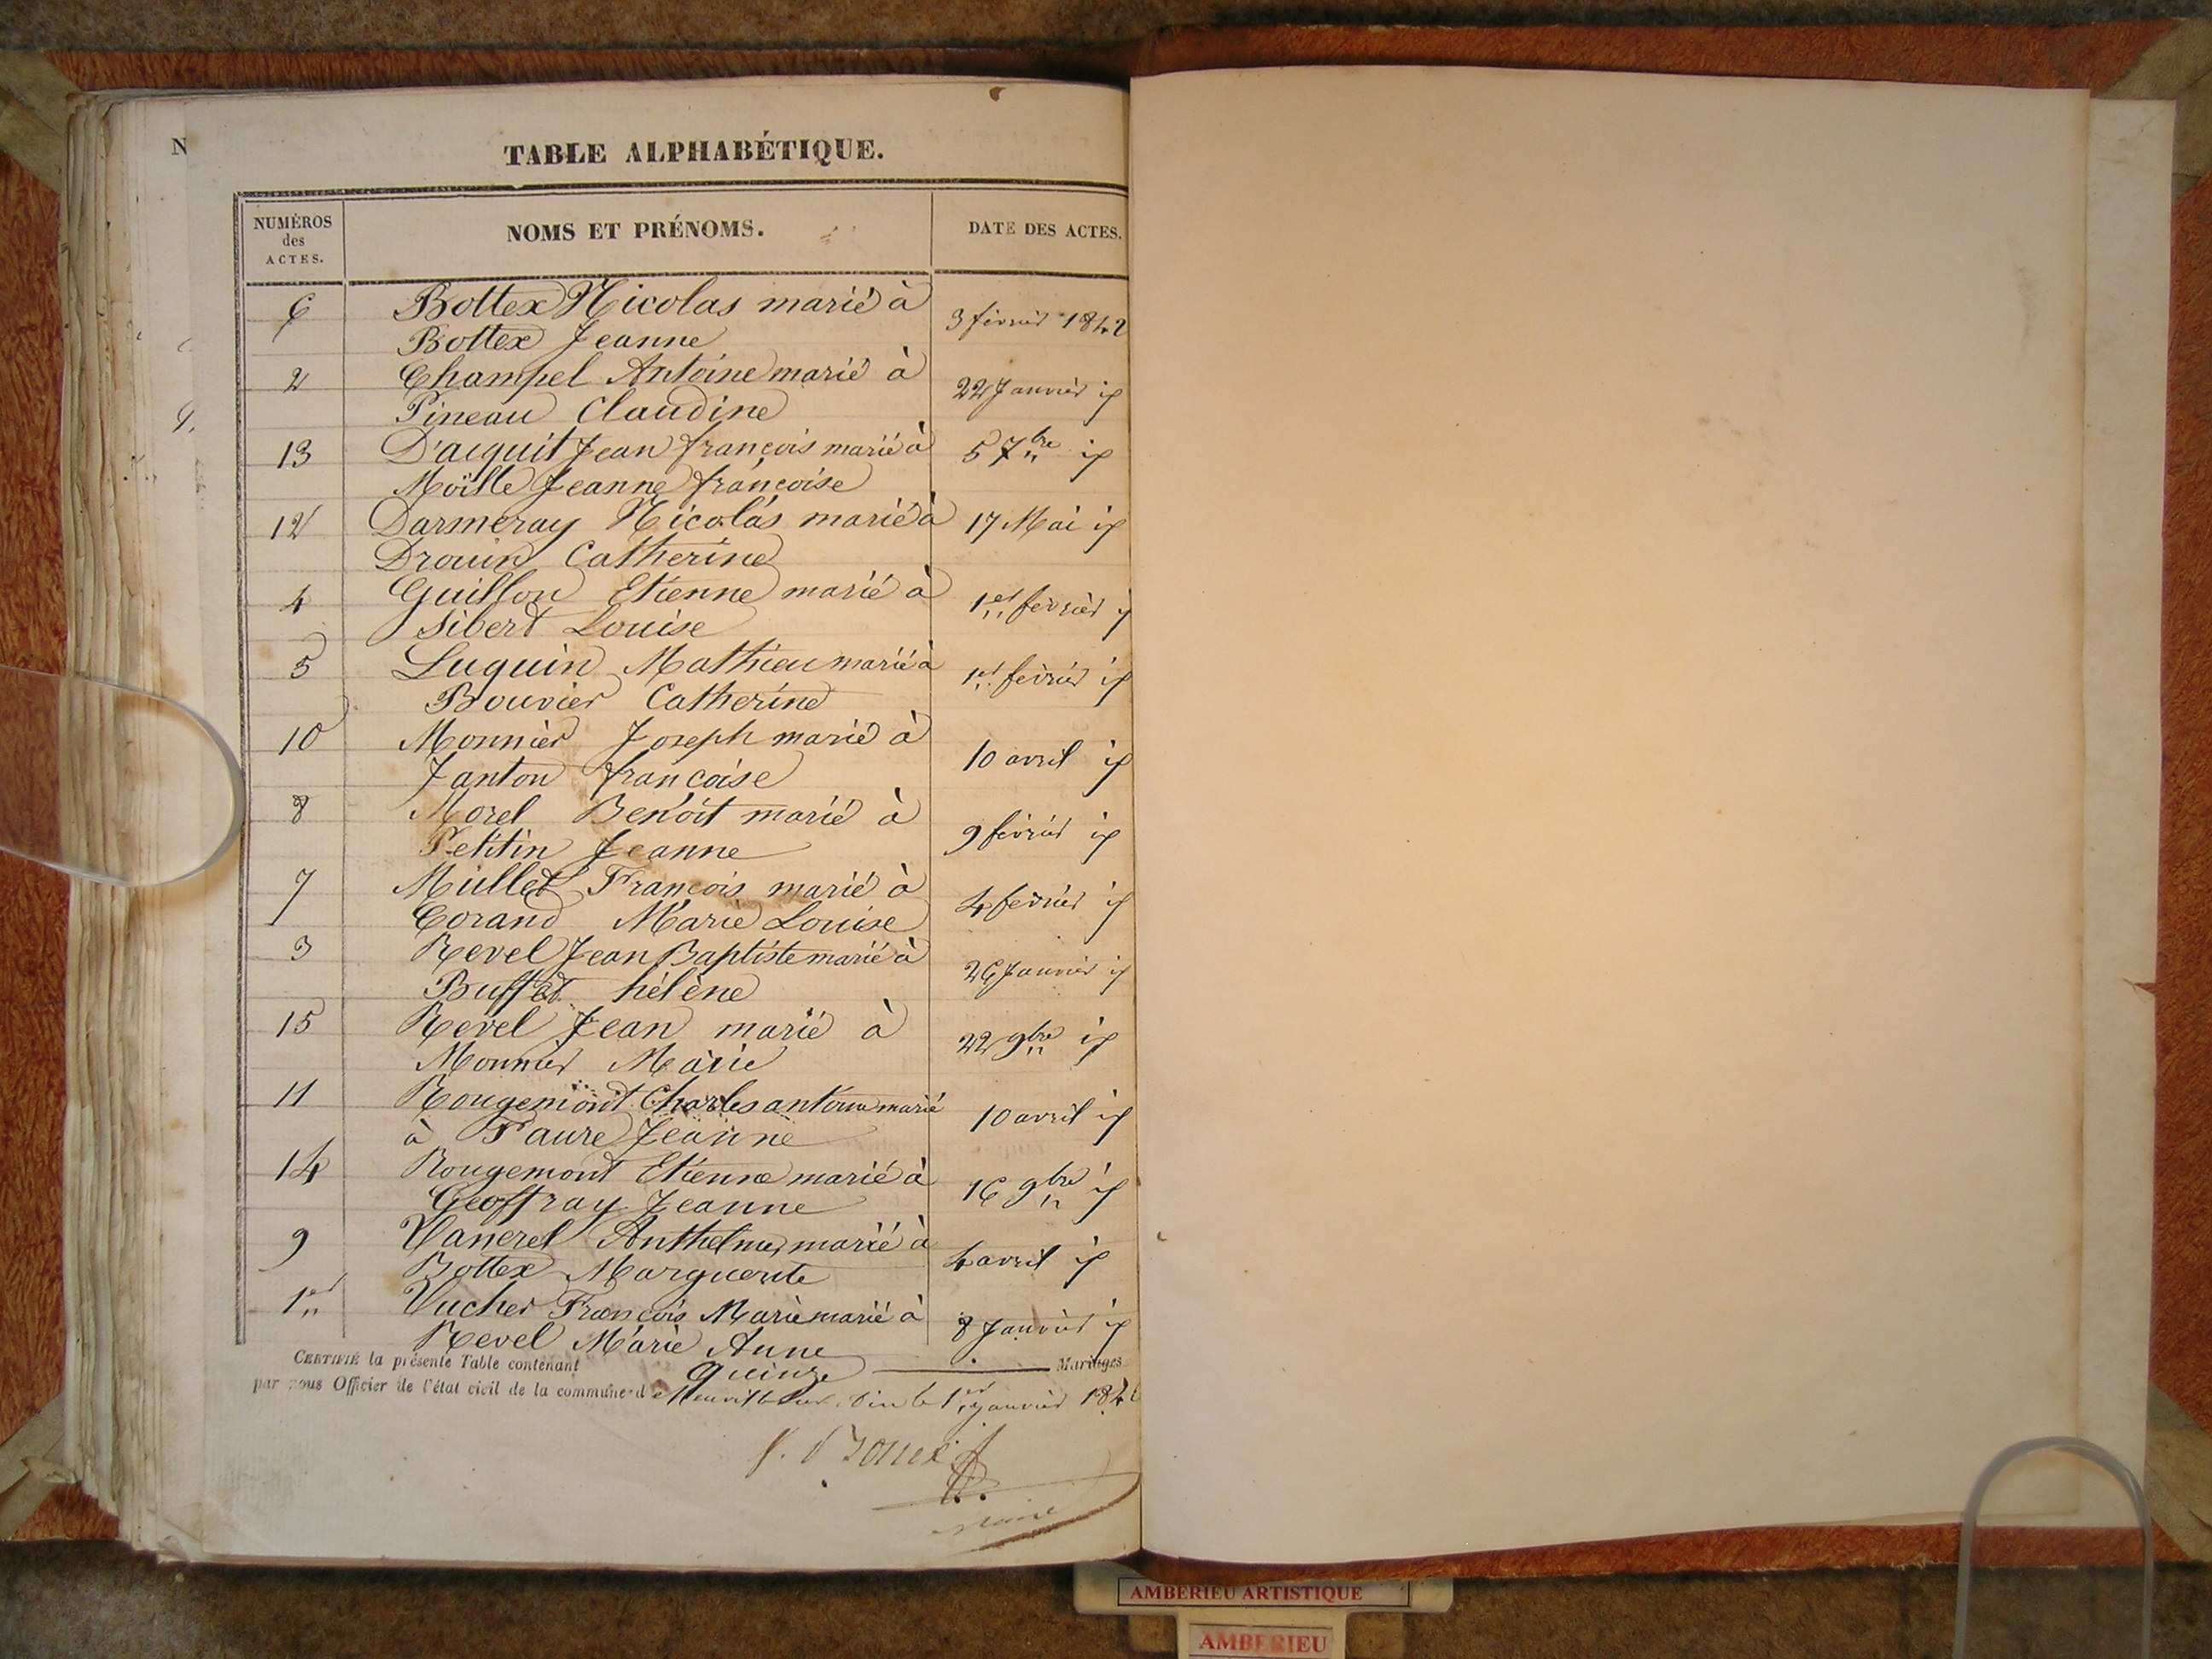 N
TABLE ALPHABÉTIQUE.
NUMÉROS des ACTES.
NOMS ET PRÉNOMS.
DATE DES ACTES.
6 Bottex Nicolas marié à 3 février 1842
Bottex Jeanne
2 Champel Antoine marié à 22 Janvier id
Pineau Claudine
13 D'acquit Jean françois marié à 5 7bre id
Moïlle Jeanne françoise
12 Darmeray Nicolas marié à 17 Mai id
Drouin Catherine
4 Guillon Etienne marié à 1er février id
Sibert Louise
5 Luquin Mathieu marié à 1er février id
Bouvier Catherine
10 Monnier Joseph marié à 10 avril id
Janton françoise
8 Morel Benoit marié à 9 février id
Petitin Jeanne
7 Mullet François marié à 4 février id
Corand Marie Louise
3 Revel Jean Baptiste marié à 26 Janvier id
Buffet hélène
15 Revel Jean marié à 22 9bre id
Monnier Marie
11 Rougemont Charles antoine marié 10 avril id
à Faure Jeanne
14 Rougemont Etienne marié à 16 9bre id
Geoffray Jeanne
9 Vanerel Anthelme marié à 4 avril id
Bottex Marguerite
1er Vucher François Marie marié à 8 Janvier id
Revel Marie Anne
CERTIFIÉ la présente Table contenant quinze Mariages
par nous Officier de l'état civil de la commune de Neuville sur Ain le 1er janvier 184
maire
AMBERIEU ARTISTIQUE
AMBERIEU